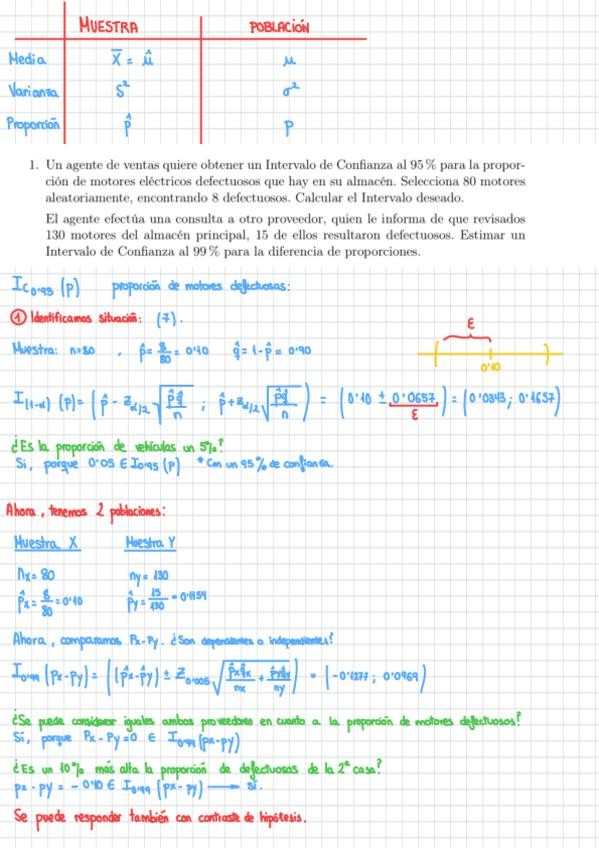 MUESTRA POBLACIÓN
Media X̄ = μ̂ μ
Varianza S² σ²
Proporción p̂ p
1. Un agente de ventas quiere obtener un Intervalo de Confianza al 95 % para la propor-
ción de motores eléctricos defectuosos que hay en su almacén. Selecciona 80 motores
aleatoriamente, encontrando 8 defectuosos. Calcular el Intervalo deseado.
El agente efectúa una consulta a otro proveedor, quien le informa de que revisados
130 motores del almacén principal, 15 de ellos resultaron defectuosos. Estimar un
Intervalo de Confianza al 99 % para la diferencia de proporciones.
IC0'95 (p) proporción de motores defectuosos:
① Identificamos situación: (7).
ε
Muestra: n=80 , p̂ = 8/80 = 0'10 q̂ = 1-p̂ = 0'90
0'10
I(1-α) (p) = (p̂ - Zα/2 √(p̂q̂/n) ; p̂ + Zα/2 √(p̂q̂/n)) = (0'10 ± 0'0657) = (0'0343 ; 0'1657)
ε
¿Es la proporción de vehículos un 5%?
Si, porque 0'05 ∈ I0'95 (p) * Con un 95% de confianza.
Ahora, tenemos 2 poblaciones:
Muestra X Muestra Y
nx = 80 ny = 130
p̂x = 8/80 = 0'10 p̂y = 15/130 = 0'1154
Ahora, comparamos Px-Py. ¿Son dependientes o independientes?
I0'99 (Px-Py) = ((p̂x-p̂y) ± Z0'005 √(p̂xq̂x/nx + p̂yq̂y/ny)) = (-0'1277 ; 0'0969)
¿Se puede considerar iguales ambos proveedores en cuanto a la proporción de motores defectuosos?
Sí, porque Px-Py=0 ∈ I0'99 (px-py)
¿Es un 10% más alta la proporción de defectuosos de la 2ª casa?
px - py = -0'10 ∈ I0'99 (px-py) → sí.
Se puede responder también con contraste de hipótesis.